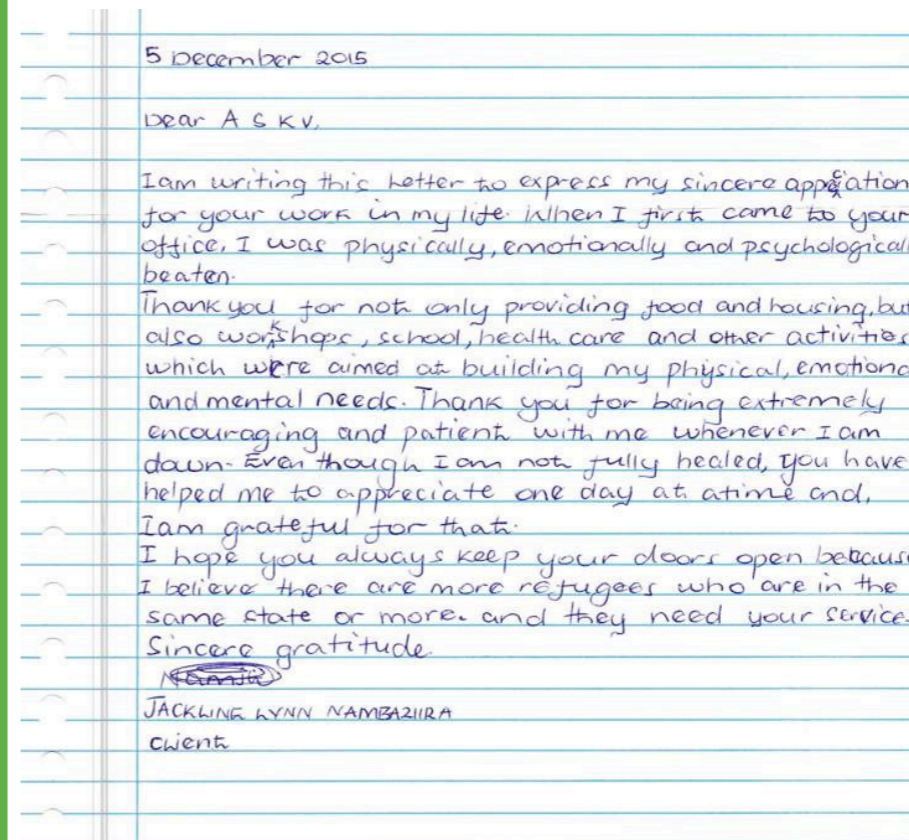 5 December 2015
Dear A S K V,
I am writing this letter to express my sincere appreciation
for your work in my life. When I first came to your
office, I was physically, emotionally and psychological
beaten.
Thank you for not only providing food and housing, but
also workshops, school, health care and other activities
which were aimed at building my physical, emotiona
and mental needs. Thank you for being extremely
encouraging and patient with me whenever I am
down. Even though I am not fully healed, you have
helped me to appreciate one day at atime and,
I am grateful for that.
I hope you always keep your doors open becaus
I believe there are more refugees who are in the
same state or more. and they need your service.
Sincere gratitude.
JACKLINE LYNN NAMBAZIIRA
client